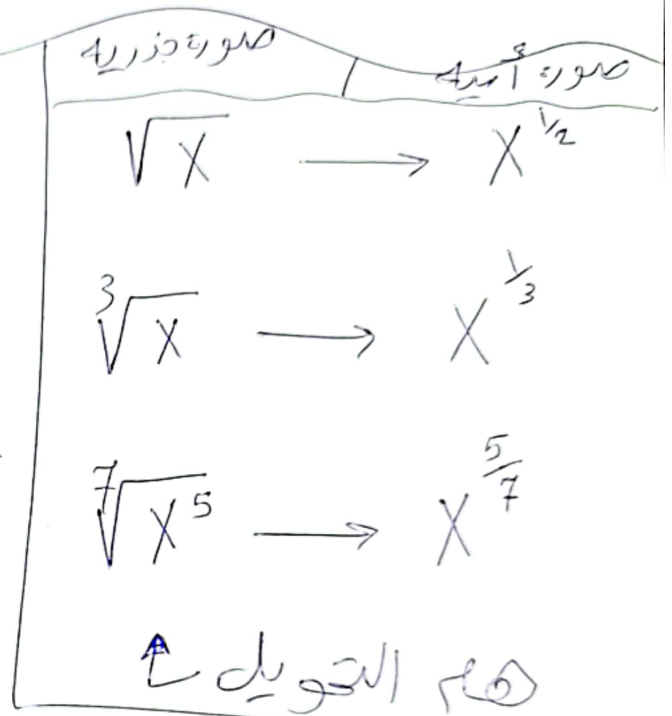 صورة جذرية / صورة أسية
√x → x^½
∛x → x^⅓
⁷√x⁵ → x^(5/7)
هام التحويل ↑